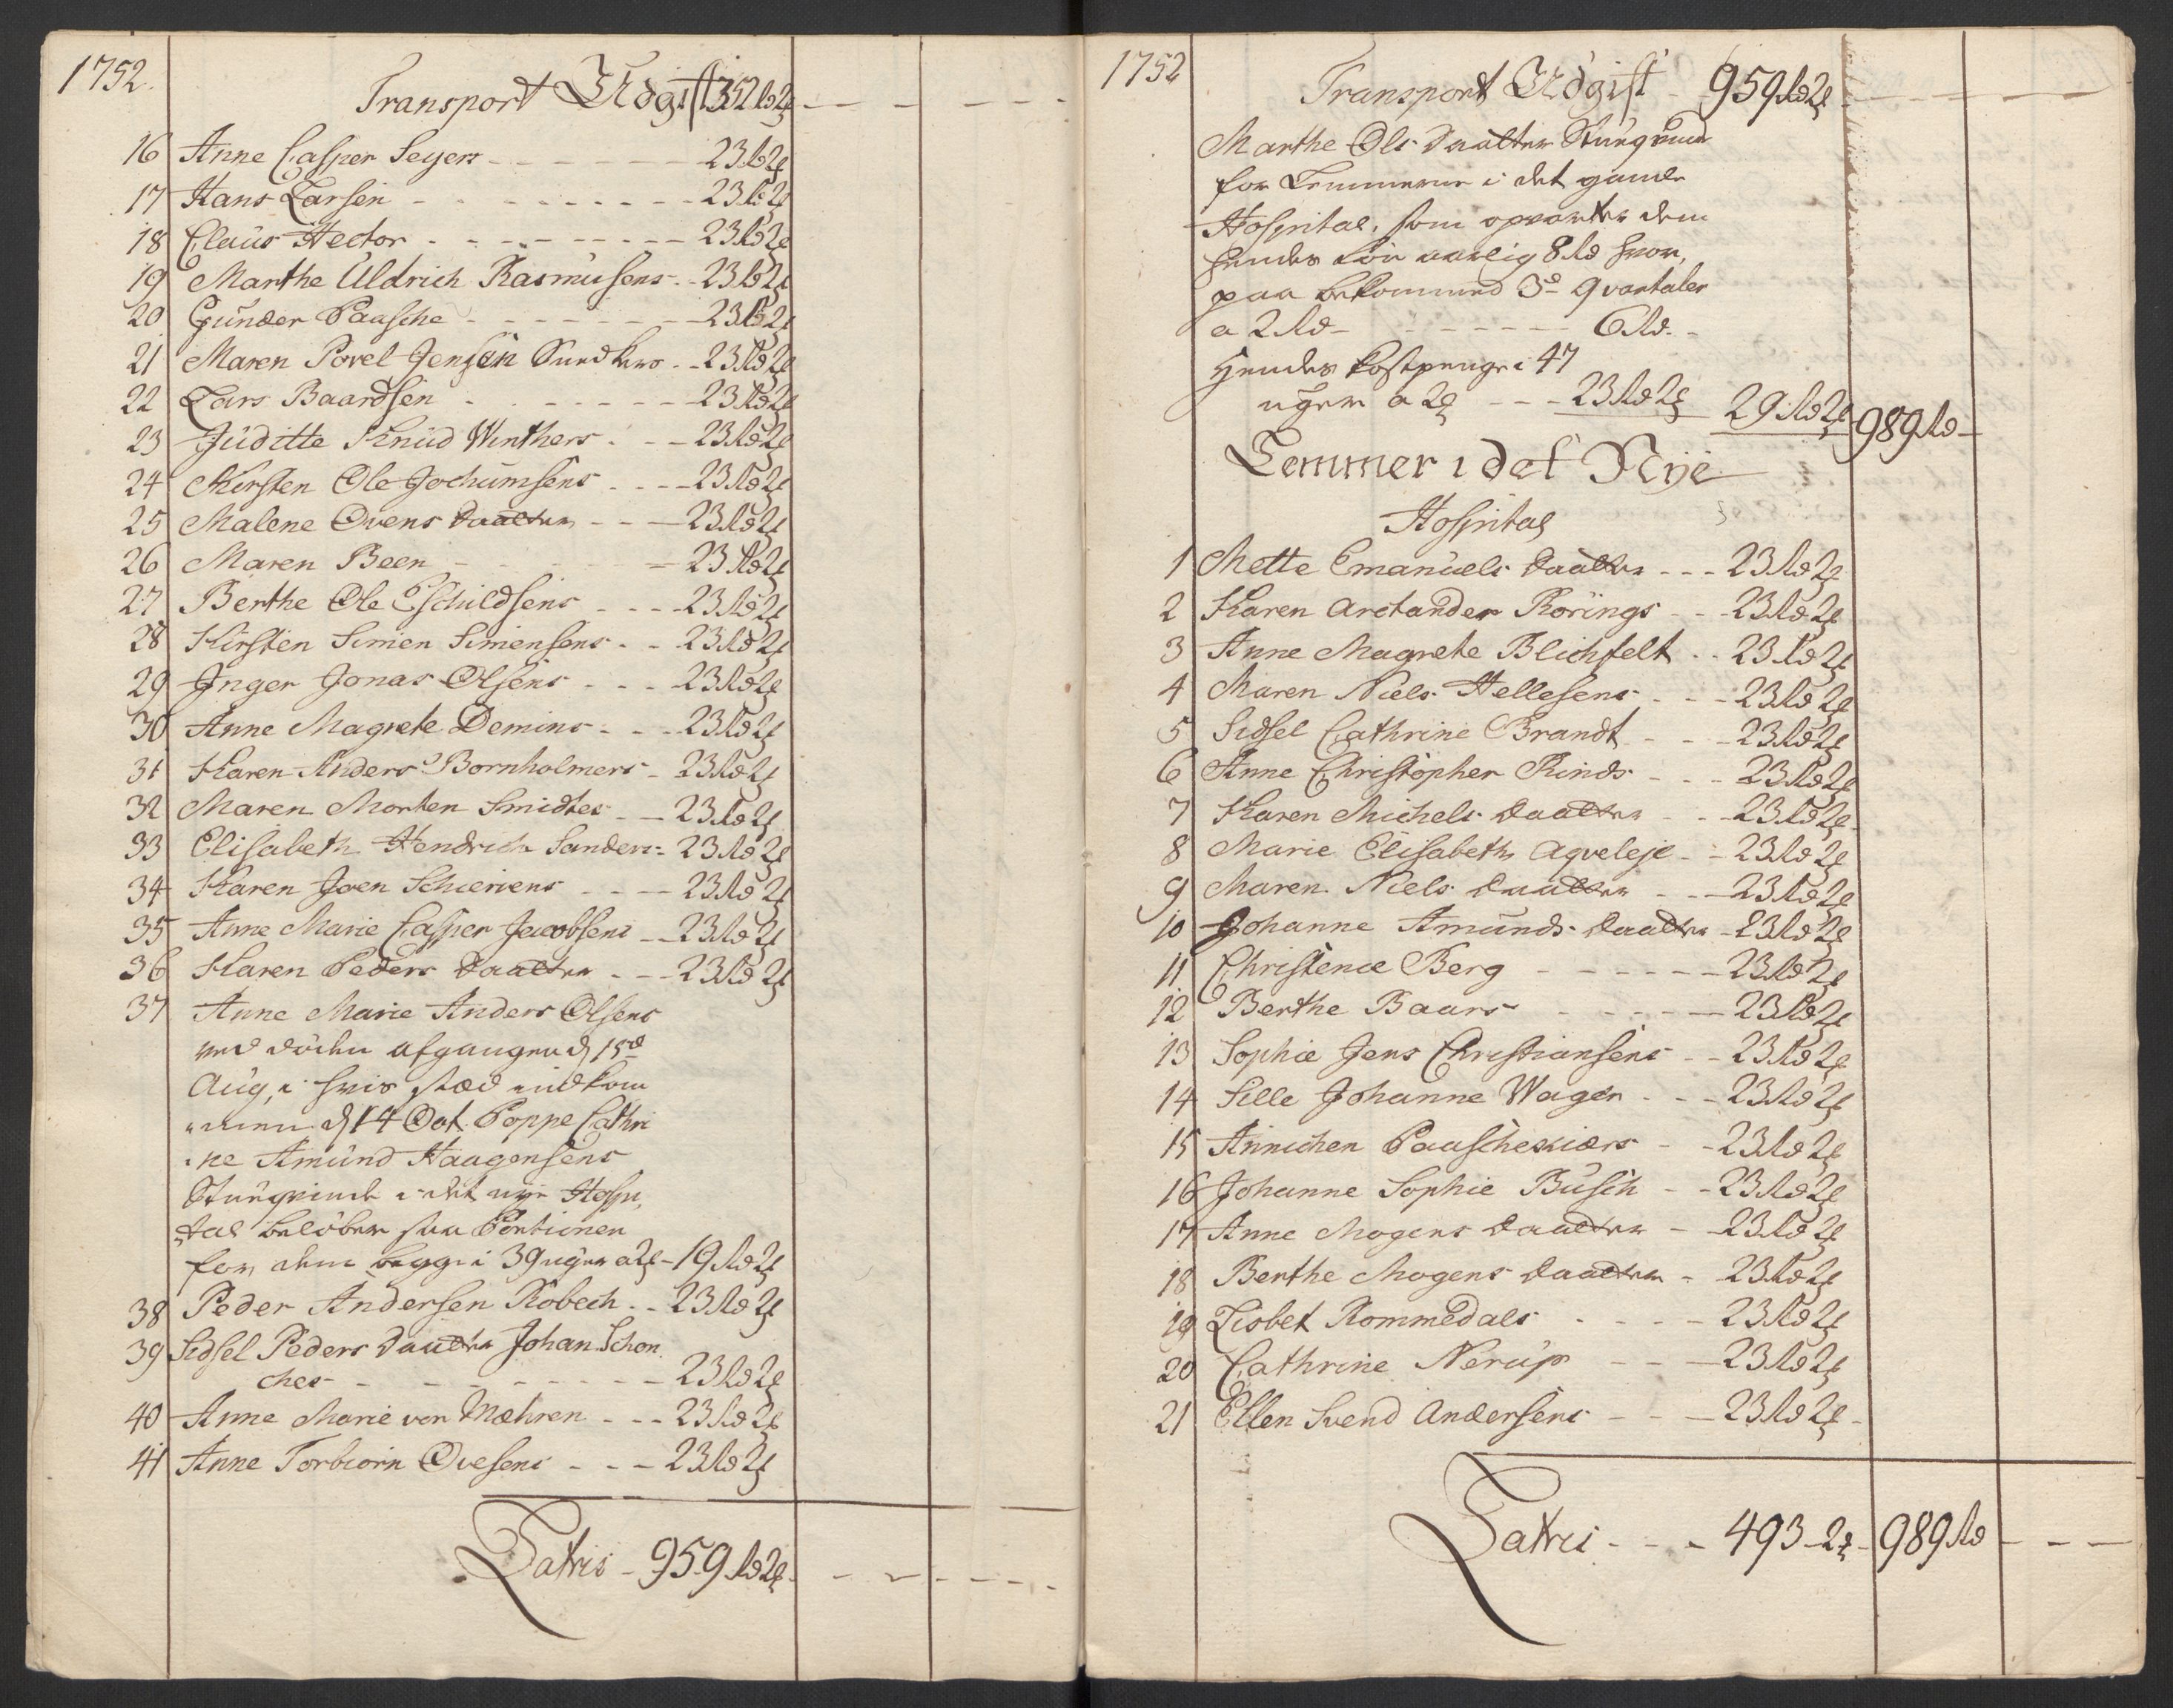 1752.
Transport Udgift 352 Rd 2ʒ
16 Anne Casper Seyers - 23 Rd 2ʒ
17 Hans Larsen - 23 Rd 2ʒ
18 Claus Hector - 23 Rd 2ʒ
19 Marthe Uldrich Rasmusens - 23 Rd 2ʒ
20 Gunder Paasche - 23 Rd 2ʒ
21 Maren Povel Jensen Sundkers - 23 Rd 2ʒ
22 Lars Baardsen - 23 Rd 2ʒ
23 Juditte Knud Winthers - 23 Rd 2ʒ
24 Kirsten Ole Jochumsens - 23 Rd 2ʒ
25 Malene Ovens Daatter - 23 Rd 2ʒ
26 Maren Been - 23 Rd 2ʒ
27 Berthe Ole Eschildsens - 23 Rd 2ʒ
28 Kirsten Simen Simensens - 23 Rd 2ʒ
29 Inger Jonas Olsens - 23 Rd 2ʒ
30 Anne Magrete Demins - 23 Rd 2ʒ
31 Karen Anders Bornholmers - 23 Rd 2ʒ
32 Maren Morten Smidtes - 23 Rd 2ʒ
33 Elisabeth Hendrich Sanders - 23 Rd 2ʒ
34 Karen Joen Schierens - 23 Rd 2ʒ
35 Anne Marie Casper Jacobsens - 23 Rd 2ʒ
36 Karen Peders Daatter - 23 Rd 2ʒ
37 Anne Marie Anders Olsens
ved döden afgangen d 15d
Aug, i hvis stæd indkom
men d 14 Oct. Poppe Cathri
ne Amund Haagensens
Stueqvinde i det nye Hospi
tal beløber saa Portionen
for dem begge i 39 uger a 2ʒ - 19 Rd 2ʒ
38 Peder Andersen Robech - 23 Rd 2ʒ
39 Sidsel Peders Daatter Johan Schon
ches - 23 Rd 2ʒ
40 Anne Marie von Mæhren - 23 Rd 2ʒ
41 Anne Torbiorn Ovesens - 23 Rd 2ʒ
Latris - 959 Rd 2ʒ
1752
Transport Udgift - 959 Rd 2ʒ
Marthe Ols Daatter Stueqvinde
for Lemmerne i det gamle
Hospital, som opvarter dem
hendes Løn aarlig 8 Rd hvor,
paa bekommed 3de Qvartaler
a 2 Rd - 6 Rd.
Hendes Kostpenge i 47
uger a 2ʒ - 23 Rd 2ʒ 29 Rd 2ʒ 989 Rd
Lemmer i det Nye
Hospital
1 Mette Emanuels Daatter - 23 Rd 2ʒ
2 Karen Arctander Rörings - 23 Rd 2ʒ
3 Anne Magrete Blichfelt - 23 Rd 2ʒ
4 Maren Niels Hellesens - 23 Rd 2ʒ
5 Sidsel Cathrine Brandt - 23 Rd 2ʒ
6 Anne Christopher Rinds - 23 Rd 2ʒ
7 Karen Michels Daatter - 23 Rd 2ʒ
8 Marie Elisabeth Agveleje - 23 Rd 2ʒ
9 Maren Niels Daatter - 23 Rd 2ʒ
10 Johanne Amunds Daatter - 23 Rd 2ʒ
11 Christence Berg - 23 Rd 2ʒ
12 Berthe Baars - 23 Rd 2ʒ
13 Sophie Jens Christiansens - 23 Rd 2ʒ
14 Sille Johanne Wagen - 23 Rd 2ʒ
15 Annichen Paascheskiærs - 23 Rd 2ʒ
16 Johanne Sophie Busch - 23 Rd 2ʒ
17 Anne Mogens Daatter - 23 Rd 2ʒ
18 Berthe Mogens Daatter - 23 Rd 2ʒ
19 Lisbet Rommedals - 23 Rd 2ʒ
20 Cathrine Nerup - 23 Rd 2ʒ
21 Ellen Svend Andersens - 23 Rd 2ʒ
Latris - 493 - 2ʒ 989 Rd